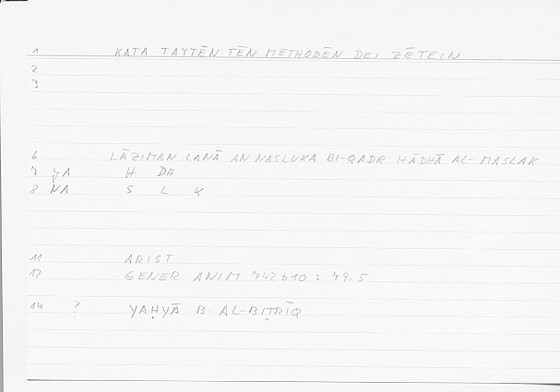 1 KATA TAYTĒN TĒN METHODĒN DEI ZĒTEIN
2
3
6 LĀZIMAN LANĀ AN NASLUKA BI-QADR HĀDHĀ AL-MASLAK
7 YA H DH
8 NA S L K
11 ARIST
12 GENER ANIM 742b10 : 79.5
14 ? YAḤYĀ B. AL-BIṬRĪQ